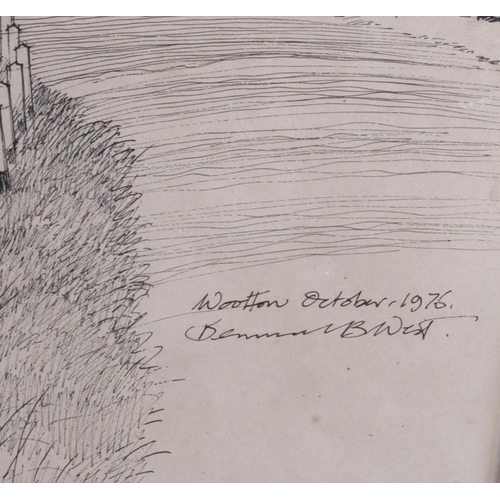 Wootton October. 1976.
B West.